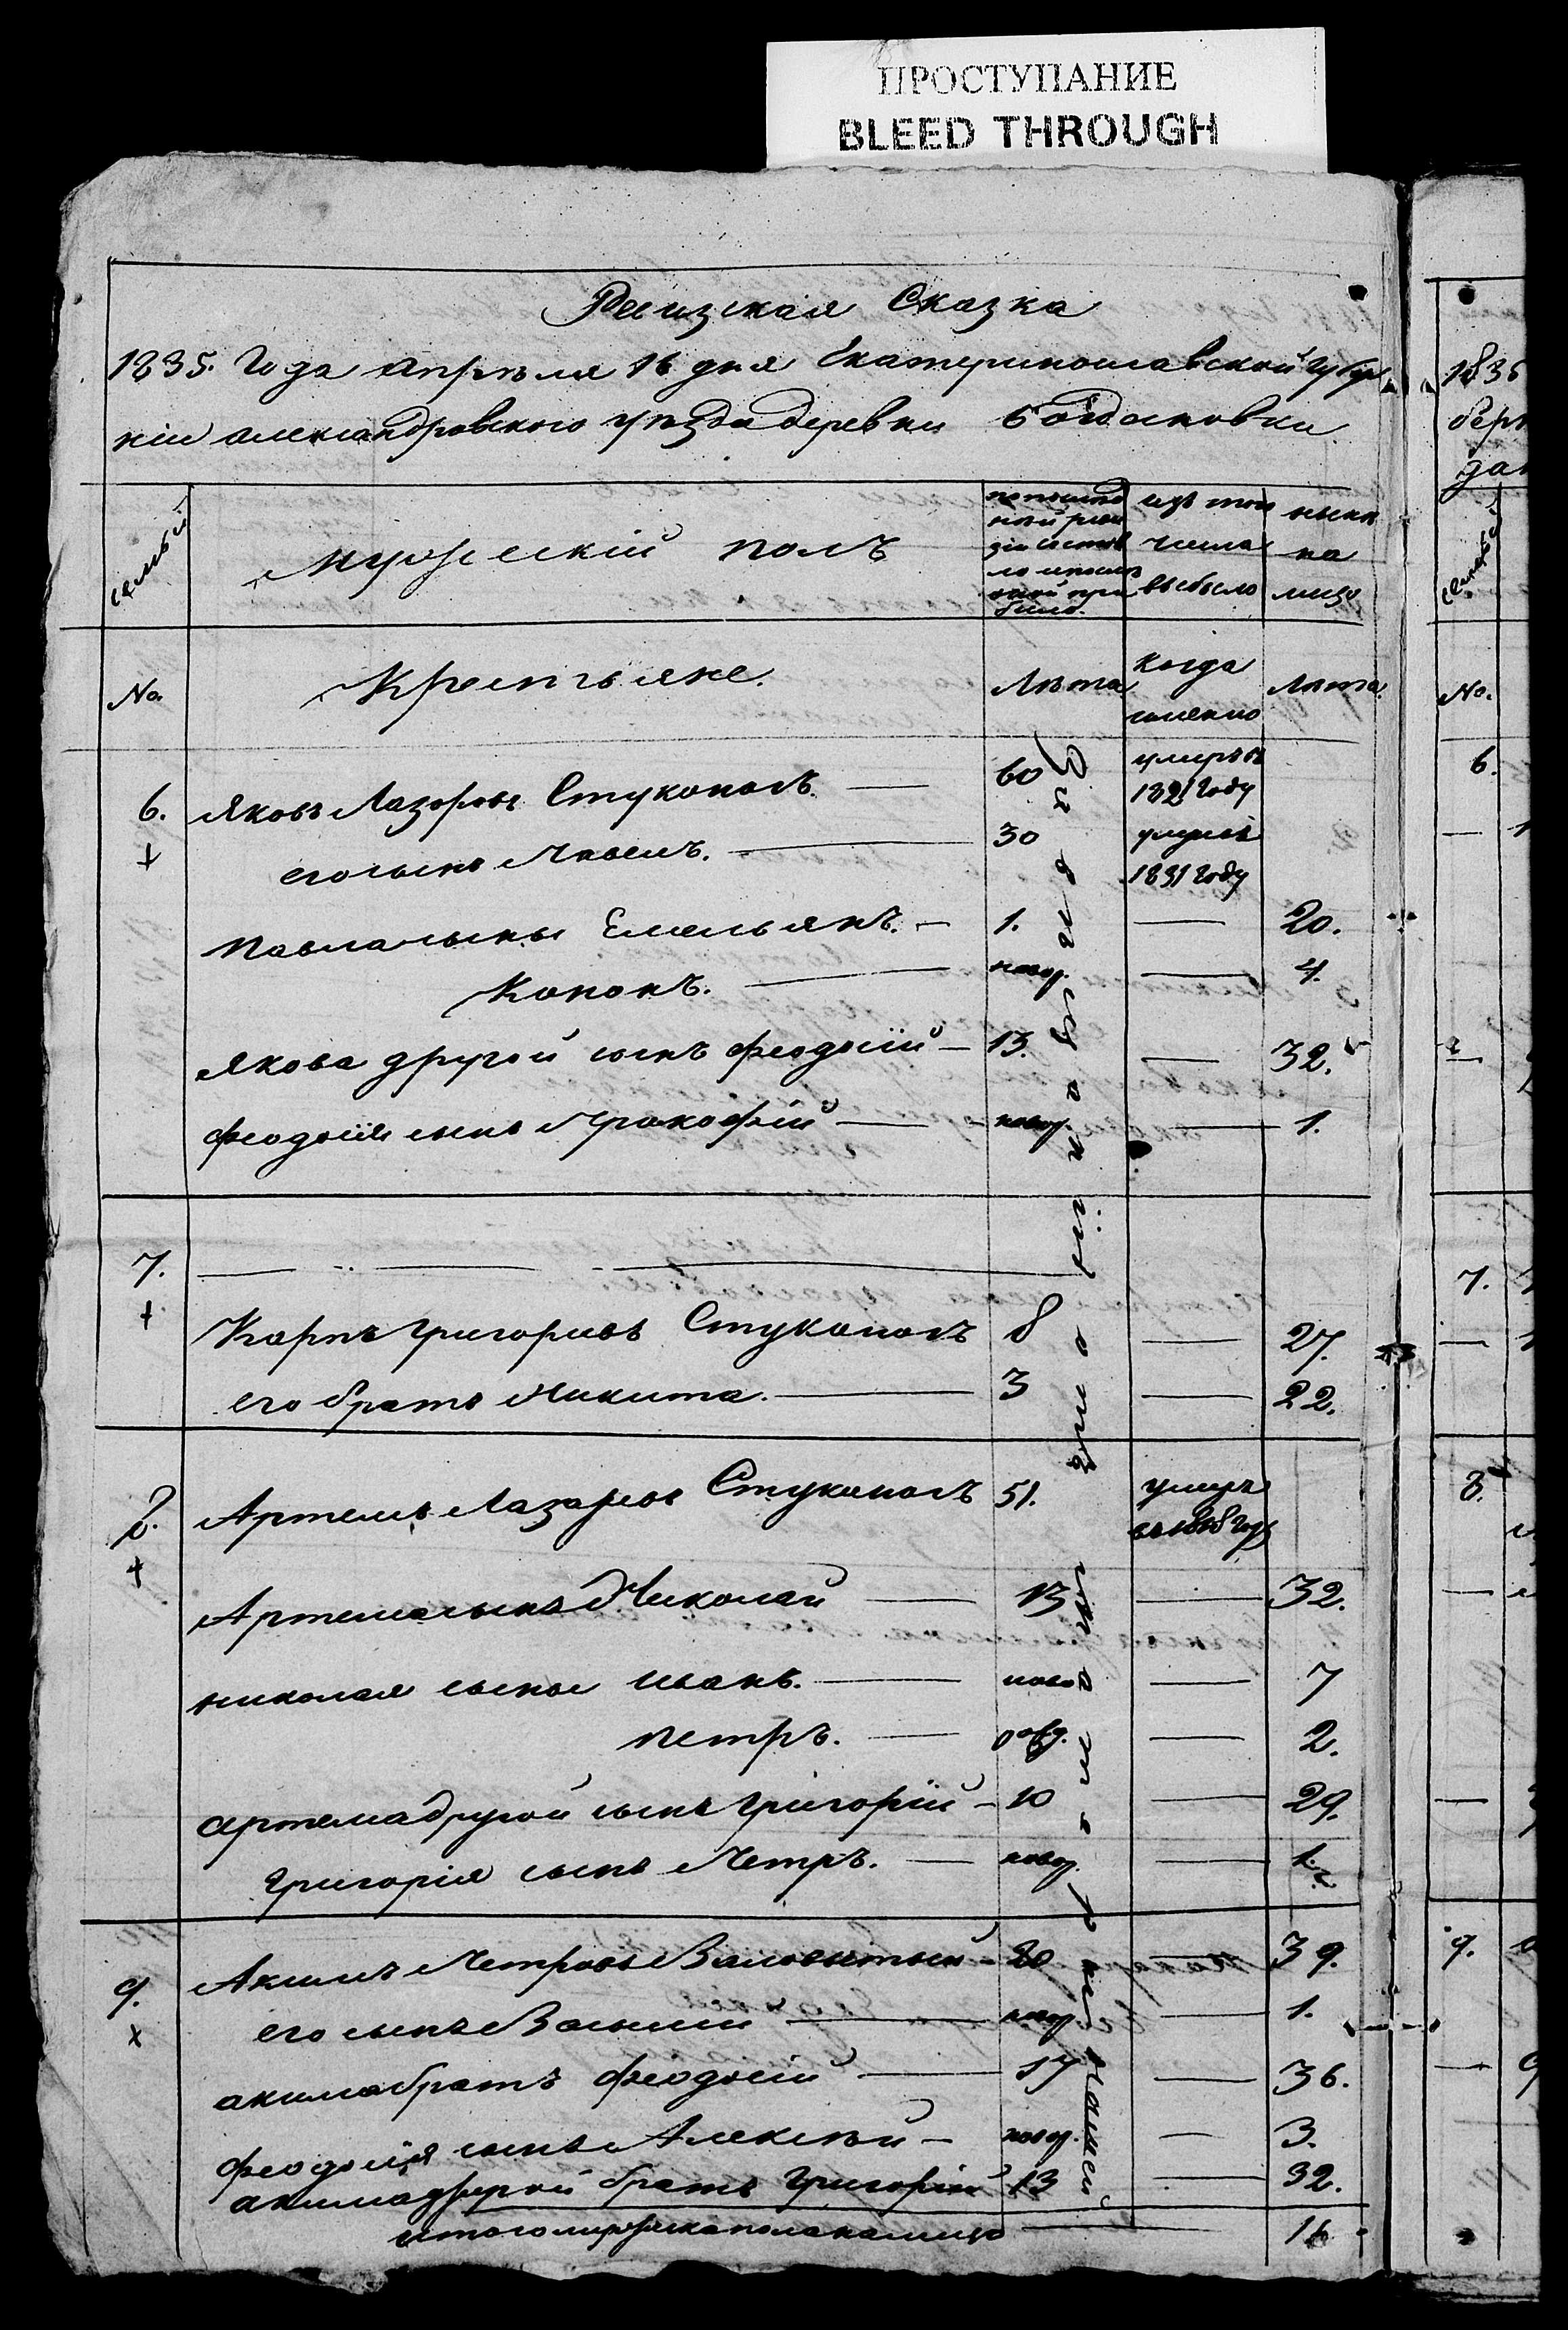 ПРОСТУПАНИЕ
BLEED THROUGH
Ревизская Сказка
1835. Года апреля 16 дня Екатеринославской Губер
нии александровского уезда деревни Богдановки
семьи
мужескій полъ
по послед
ней реви
зіи состоя
ло и после
оной при
было.
изъ того
числа
выбыло
ныне
на
лицо
No.
Крестьяне.
Лета
когда
именно
Лета.
6. Яковъ Лазоровъ Стуконогъ — 60 умеръ въ
1821 Году
его сынъ Павелъ. — 30 умеръ
1831 Году
Павла сыны Емельянъ. — 1. — 20.
Кононъ. — новор. — 4.
Якова другой сынъ феодосій — 13. — 32.
феодосія сынъ Прокофій — новор. — 1.
7.
Карпъ Григорьевъ Стуконогъ 8 — 27.
его братъ Никита. — 3 — 22.
8. Артемъ Лазаревъ Стуконогъ 51. умеръ
Году
Артема сынъ Николай — 13 — 32.
николая сыны иванъ. — ново — 7
петръ. — рожд. — 2.
артема другой сынъ Григорій — 10 — 29.
Григорія сынъ Петръ. — новор. — 1.
9. Акимъ Петровъ 20 — 39.
его сынъ Василий — новор. — 1.
акима братъ феодосій — 17 — 36.
феодосія сынъ Алексей — новор. — 3.
акима другой братъ Григорій 13 — 32.
итого мужеска пола налицо — 16
1835
6.
7.
8.
9.
No.